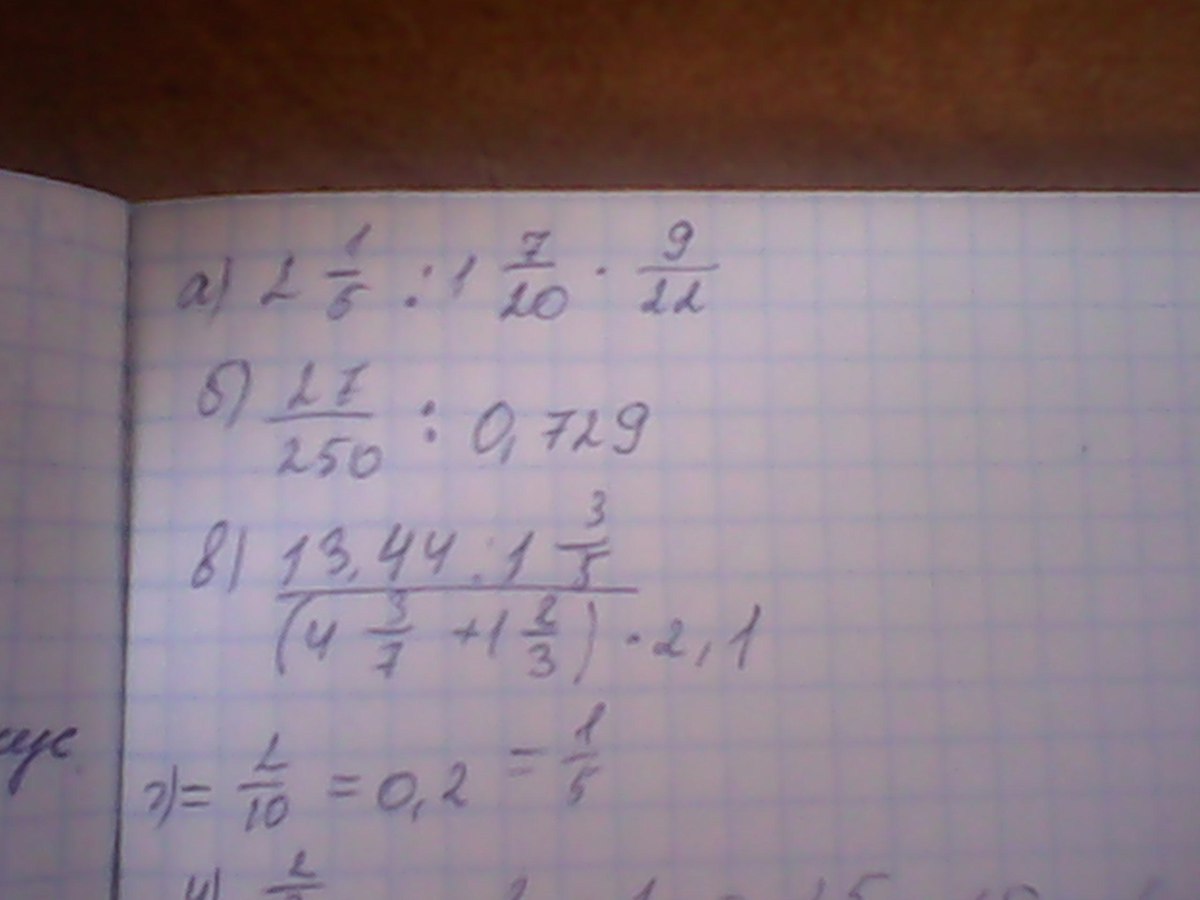 а) 2 1/5 : 1 7/20 · 9/22
б) 27/250 : 0,729
в) 13,44 : 1 3/5 / (4 3/7 + 1 2/3) · 2,1
г) = 2/10 = 0,2 = 1/5